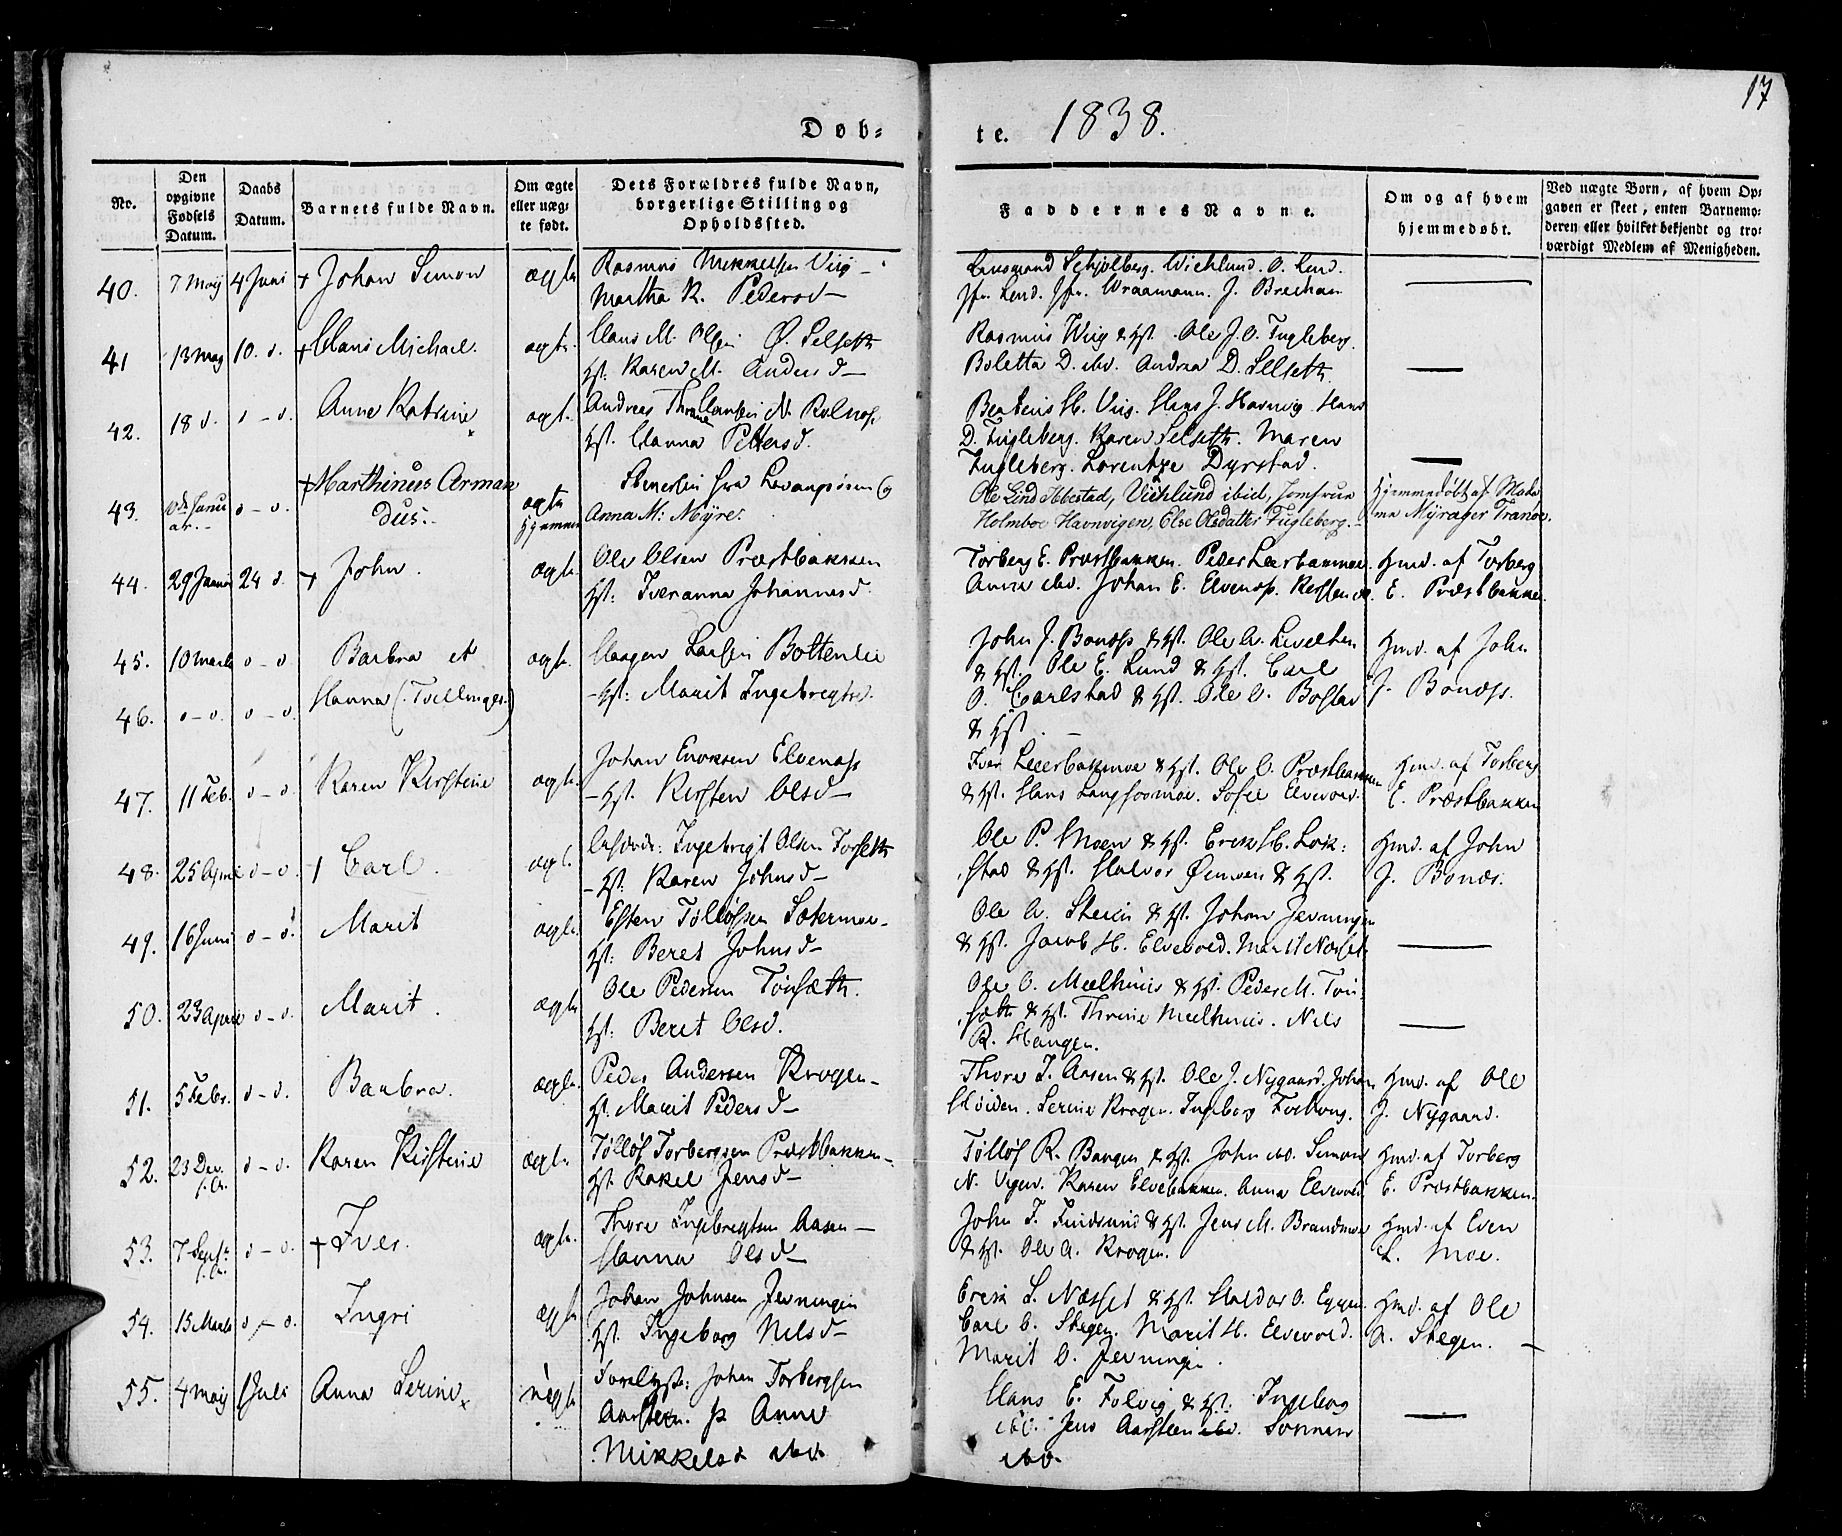 17
Døb-
te. 1838.
No.
Den opgivne Fødsels Datum.
Daabs Datum.
Barnets fulde Navn.
Om ægte eller uægte født.
Dets Forældres fulde Navn, borgerlige Stilling og Opholdssted.
Faddernes Navne.
Om og af hvem hjemmedøbt.
Ved uægte Børn, af hvem Opgaven er skeet, enten Barnemoderen eller hvilket bekjendt og troværdigt Medlem af Menigheden.
40. 7 Maij 4 Juni + Johan Simon ægte Rasmus Mikkelsen Viig
Martha K. Pedersd
Schjølberg. Wichlund. O. Lind.
Jfr. Lind. Jfr. Wraamann. J.
41 13 Maij 10. d. + Hans Michael. ægte. Hans M. Olsen Ø. Selseth
Hst. Karen M. Andersd
Rasmus Wiig & Hst. Ole J. O. Fugleberg.
Boletta D. ibd. Andrea D. Selseth.
42. 18 d. d - d. Anne Katrine ægt. Andreas Hansen N. Rolnæs
Hst. Hanna Pettersd.
H. Viig. Hans J. Havnvig. Hans
D. Fugleberg. Karen Selseth. Maren
Fugleberg. Lorentze Dyrstad.
43. Januar. d - d. + Marthinus Armandus. ægte hjemme
fra Levanger og
Anna M: Myre.
Ole Lind Ibbestad, Vichlund ibid, Jomfrue
Holmboe Havnvigen, Else Olsdatter Fugleberg.
Hjemmedøbt af Madame Myrager Tranøe.
44. 29 Januar 24 d. + John. ægte. Ole Olsen Præstbakken
Hst: Iveranna Johannesd.
Torberg E. Præstbakken. Peder Leerbakmoe.
Anne ibd. Johan E. Elvenæs. Kersten ibd.
Hmd. af Torberg
E. Præstbakken.
45. 10 Marts d - d Barbra et ægte. Haagen Larsen Bottenlie
Hst: Marit Ingebregtsd.
John J. Bonæs & Hst. Ole
& Hst. Ole E. Lund & Hst. Carl
O. Carlstad & Hst. Ole O. Bostad
& Hst.
Hmd. af John
J. Bonæs.
46. d - d. d - d. Hanna (: Tvillinger.)
47. 11 Feb. d - d Karen Kirstine ægte. Johan Eriksen Elvenæs
Hst. Kersten Olsd
Iver Leerbakmoe & Hst. Ole O. Præstbakken
& Hst. Hans Langfoormoe. Sofie Elvevold.
Hmd. af Torberg
E. Præstbakken
48. 25 April d - d. + Carl. ægt. Ingebrigt Olsen Forseth
Hst. Karen Johnsd
Ole P. Moen & Hst. Erik H. Lok-
stad & Hst. Halvor & Hst.
Hmd. af John
J. Bonæs.
49. 16 Juni d - d. Marit ægte. Esten Tølløfsen Sætermoe
Hst: Beret Johnsd
Ole & Hst. Johan Jervningen
& Hst. Jacob H. Elvevold. Marit
50. 29 April d - d. Marit. ægte Ole Pedersen Tønsæth.
Hst: Beret Olsd.
Ole O. Meelhuus & Hst. Peder M. Tøn-
sæth & Hst. Thrine Meelhuus. Nils
R. Haugen.
51. 5 Febr. d - d. Barbra. ægte. Peder Andersen Krogen
Hst. Marit Pedersd
Thore I. Aasen & Hst. Ole J. Nygaard. Johan
Høiden. Serine Krogen. Ingeborg
Hmd. af Ole
J. Nygaard.
52. 23 Dec. f. A. d - d. Karen Kirstine ægte. Tølløf Torbergsen Præstbakken
Hst. Rakel Jensd
Tølløf R. Bangen & Hst. John ibd. Simon
N. Karen Elvebakken. Anna Elvevold
Hmd. af Torberg
E. Præstbakken.
53. 7 Septr. f. A. d - d. + Iver. ægte. Thore Ingebregtsen Aasen
Hanna Olsd
John I. Fundsund & Hst. Jens M. Brandmoe
& Hst. Ole A. Krogen.
Hmd. af Even
L. Moe.
54. 15 Marts d - d. Ingri ægte Johan Johnsen Jervningen
Hst. Ingeborg Nilsd
Erik S. Næsset & Hst. Haldor O. Eggen.
Carl O. Stegen. Marit H. Elvevold.
Marit O. Jervningen.
Hmd. af Ole
A. Stegen.
55. 4 Maij 1 Juli Anna Serine uægte Johan Torbergsen
Aarsteen. p Anne
Mikkelsd ibd.
Hans E. Folvig & Hst. Ingeborg
ibd. Jens Aarsteen ibd.
ibd.